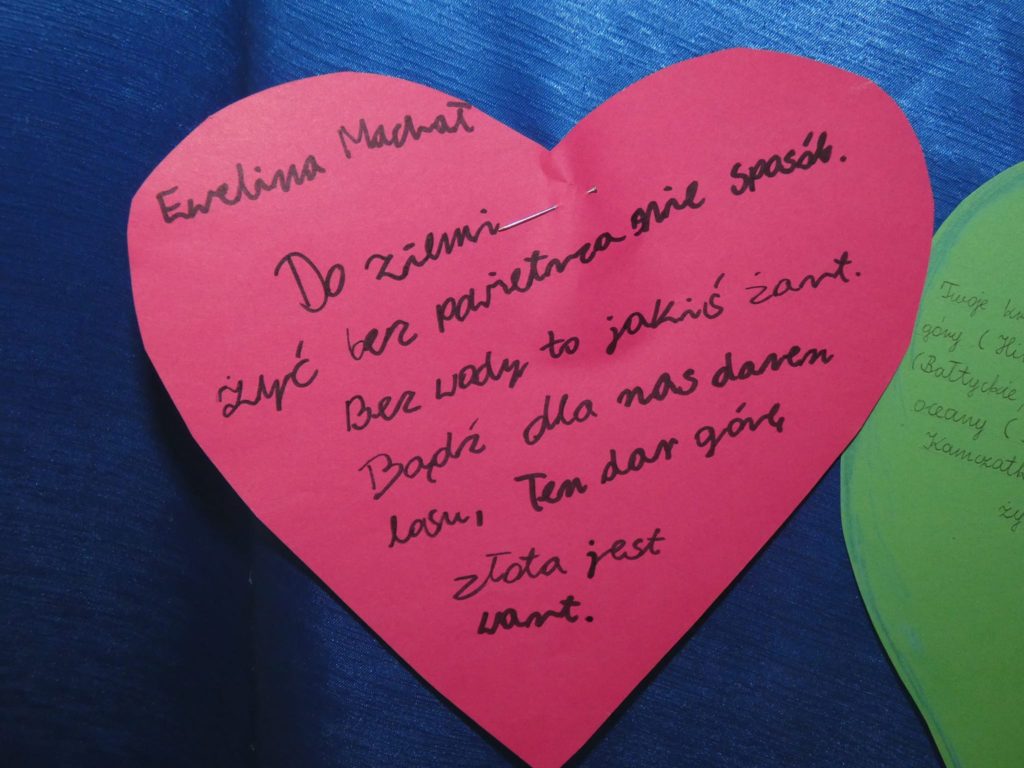 Ewelina Machał
Do ziemi
żyć bez powietrza nie sposób.
Bez wody to jakiś żart.
Bądź dla nas darem
losu, Ten dar górę
złota jest
wart.
Twoje
góry (
(Bałtyckie,
oceany (
Kamczatk
ży